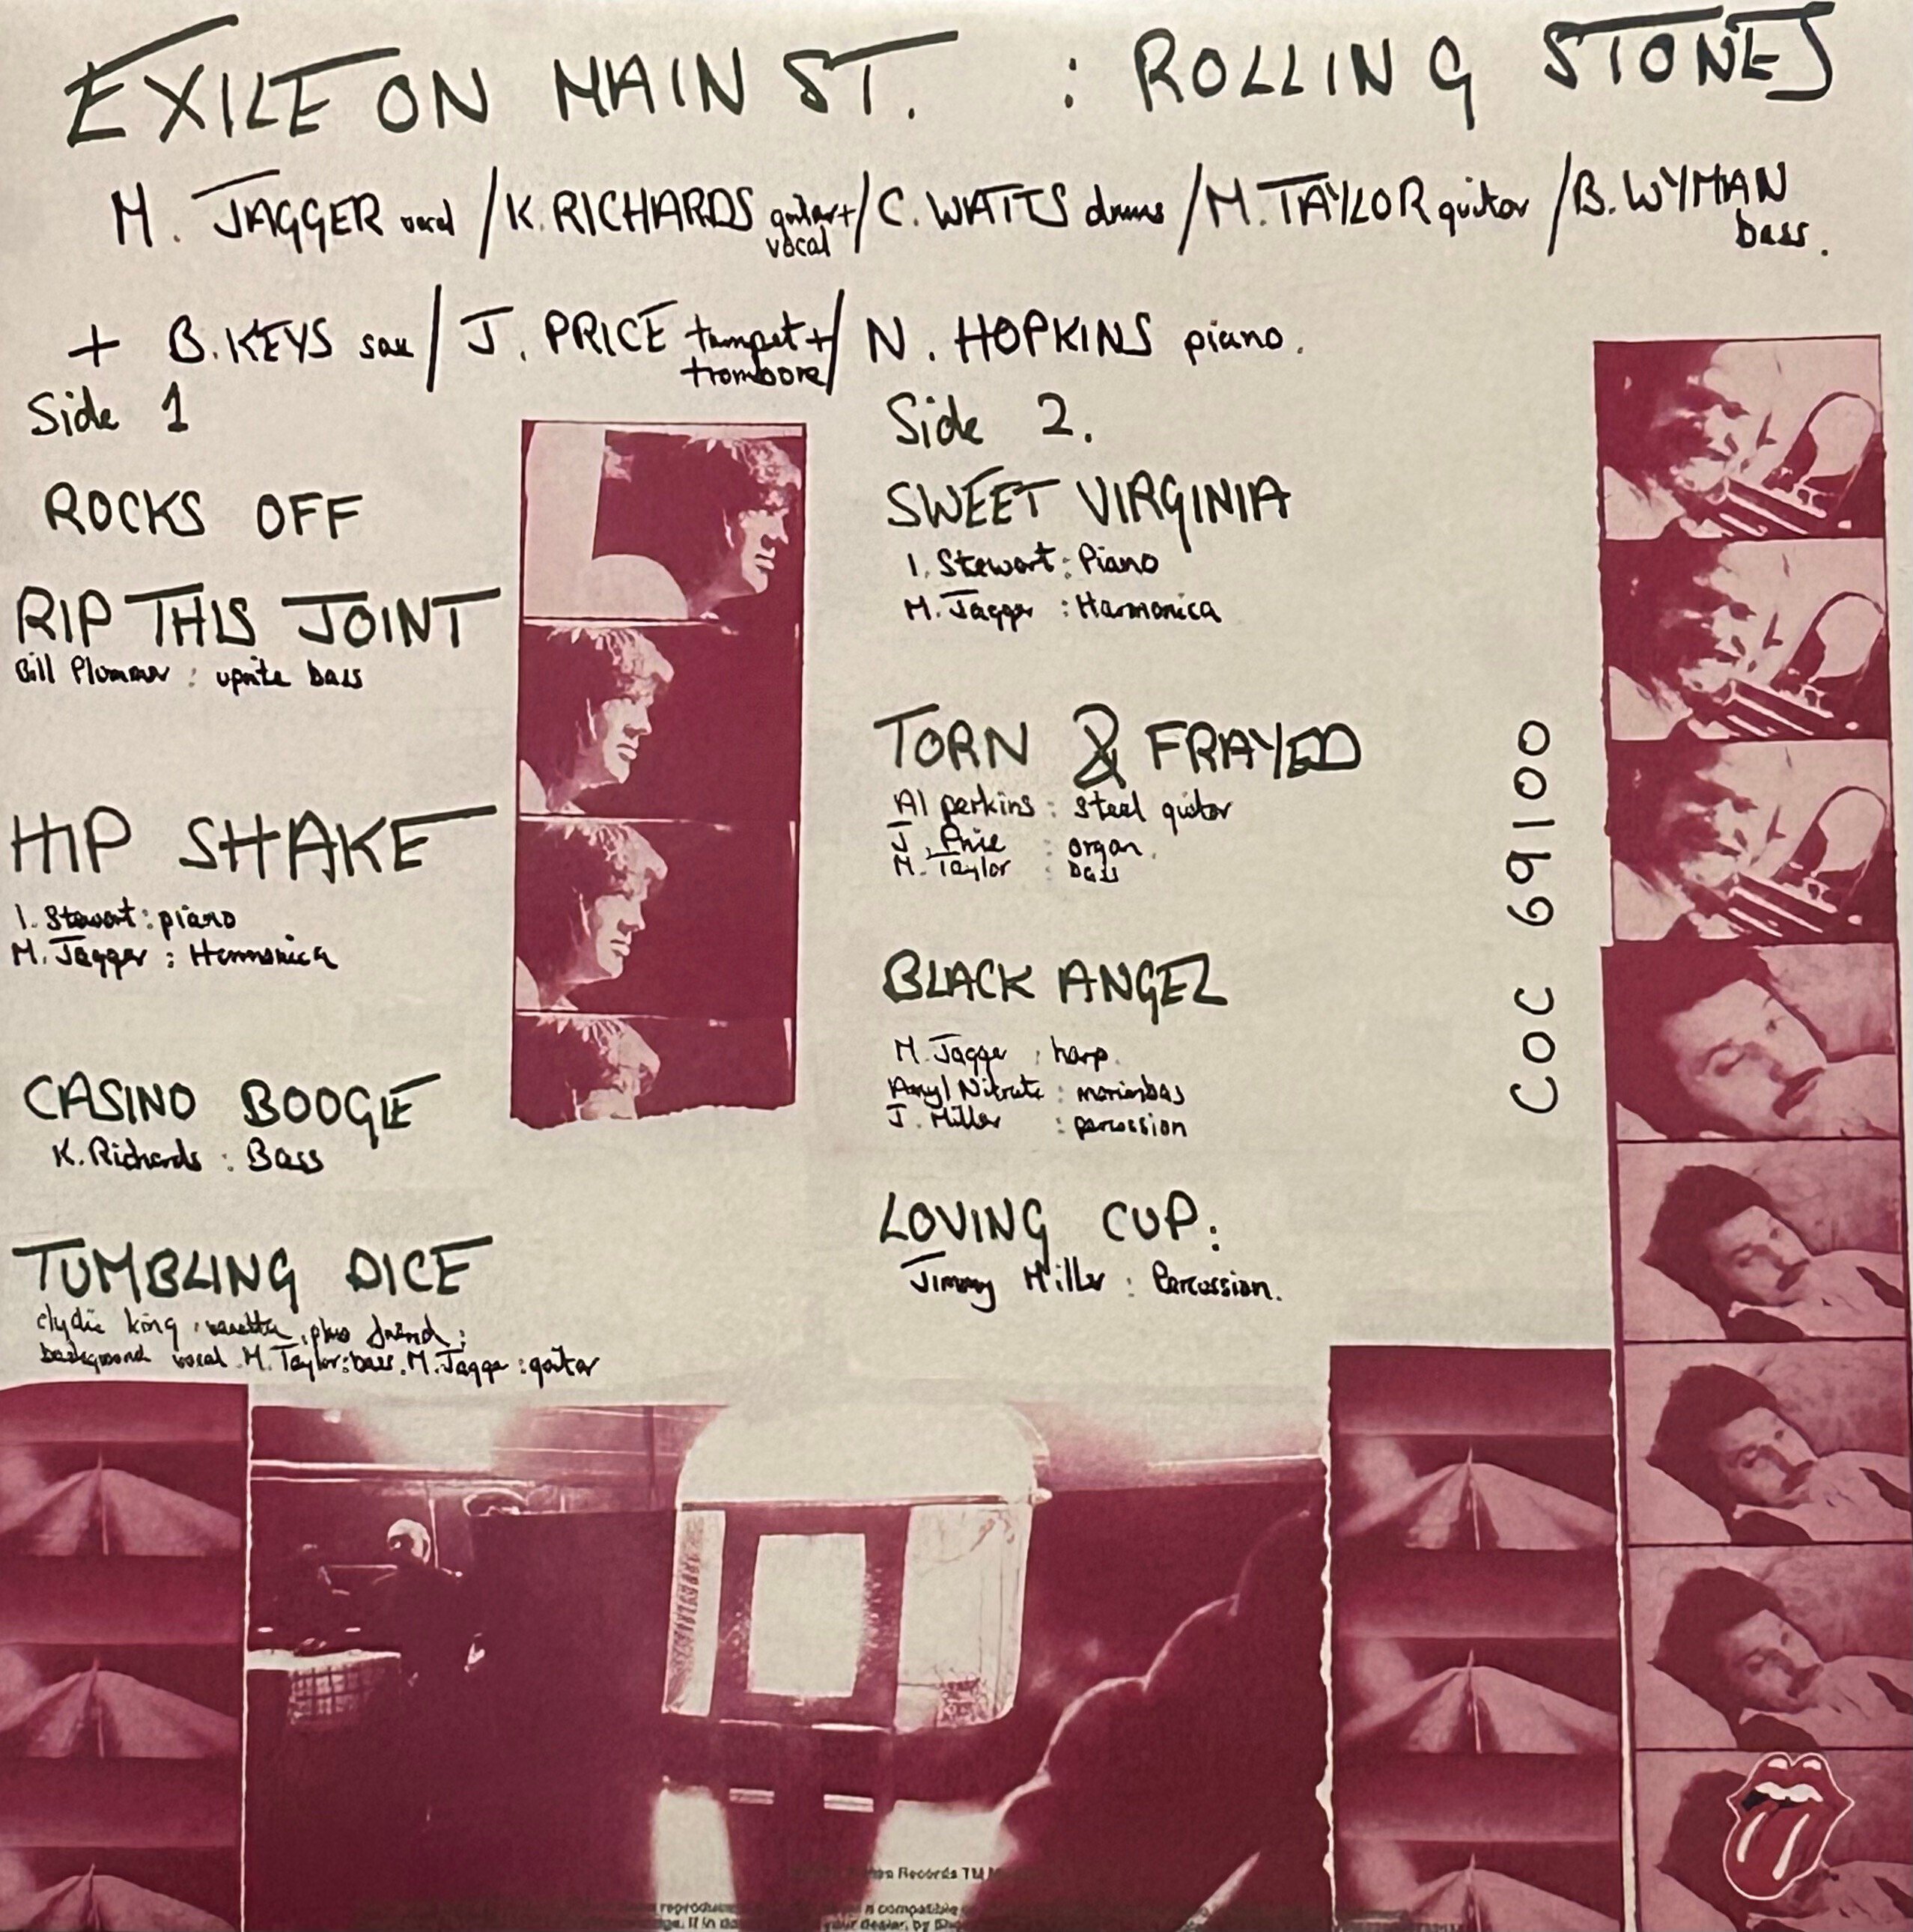 EXILE ON MAIN ST. : ROLLING STONES
M. JAGGER vocal / K. RICHARDS guitar + vocal / C. WATTS drums / M. TAYLOR guitar / B. WYMAN bass.
+ B. KEYS sax / J. PRICE trumpet + trombone / N. HOPKINS piano.
Side 1
ROCKS OFF
RIP THIS JOINT
Bill Plummer : uprite bass
HIP SHAKE
I. Stewart : piano
M. Jagger : Harmonica
CASINO BOOGIE
K. Richards : Bass
TUMBLING DICE
clydie king, vanetta, plus friend :
background vocal. M. Taylor : bass. M. Jagger : guitar
Side 2.
SWEET VIRGINIA
I. Stewart : Piano
M. Jagger : Harmonica
TORN & FRAYED
Al perkins : steel guitar
J. Price : organ.
M. Taylor : bass
BLACK ANGEL
M. Jagger : harp.
Amyl Nitrate : marimbas
J. Miller : percussion
LOVING CUP :
Jimmy Miller : Percussion.
COC 69100
Records TM
compatible
your dealer, by